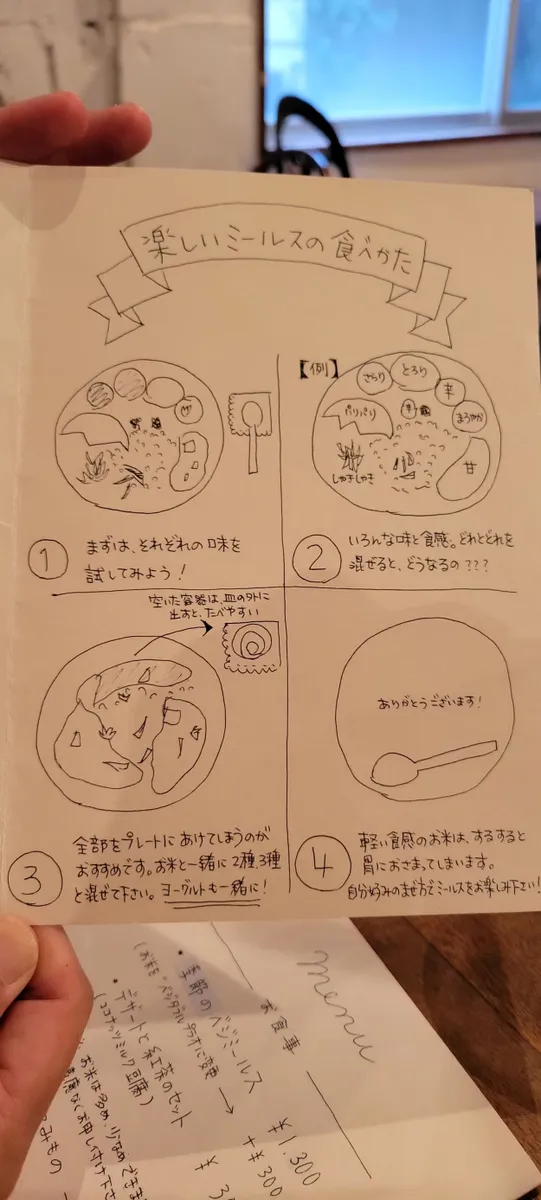 楽しいミールスの食べかた
【例】
さらり
とろり
辛
まろやか
パリパリ
しゃきしゃき
甘
1
まずは、それぞれの味を
試してみよう!
2
いろんな味と食感。どれとどれを
混ぜると、どうなるの???
空いた容器は、皿の外に
出すと、たべやすい
3
全部をプレートにあけてしまうのが
おすすめです。お米と一緒に2種、3種
と混ぜて下さい。ヨーグルトも一緒に!
ありがとうございます!
4
軽い食感のお米は、するすると
胃におさまってしまいます。
自分好みのまぜ方でミールスをお楽しみ下さい!
menu
お食事
・季節のベジミールス → ¥1.300
+¥300
・デザートと紅茶のセット ¥
(ココナッツミルク豆腐)
お米は多め、少なめ